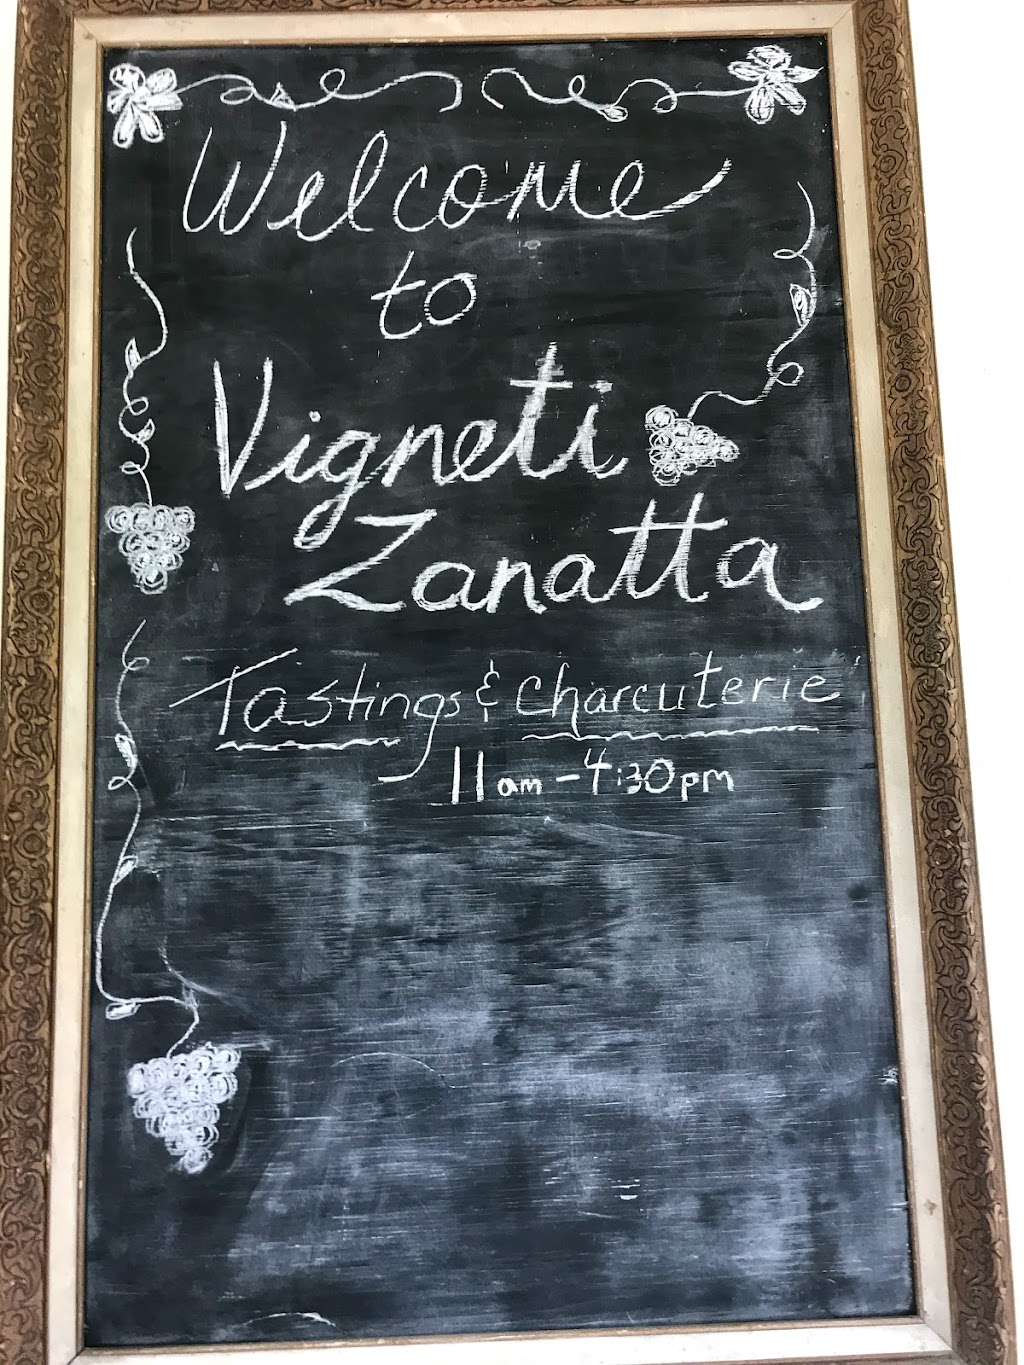 Welcome
to
Vigneti
Zanatta
Tastings & Charcuterie
11am - 4:30pm